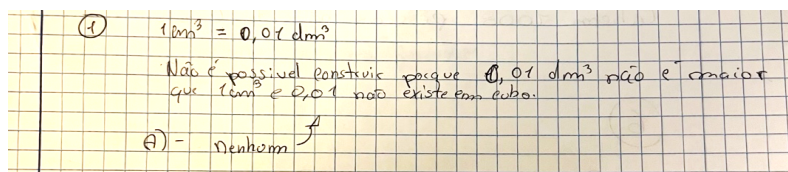 1 1cm³ = 0,01 dm³
Não é possivel construir porque 0,01 dm³ não é maior
que 1cm³ e 0,01 não existe em cubo.
A) - nenhum